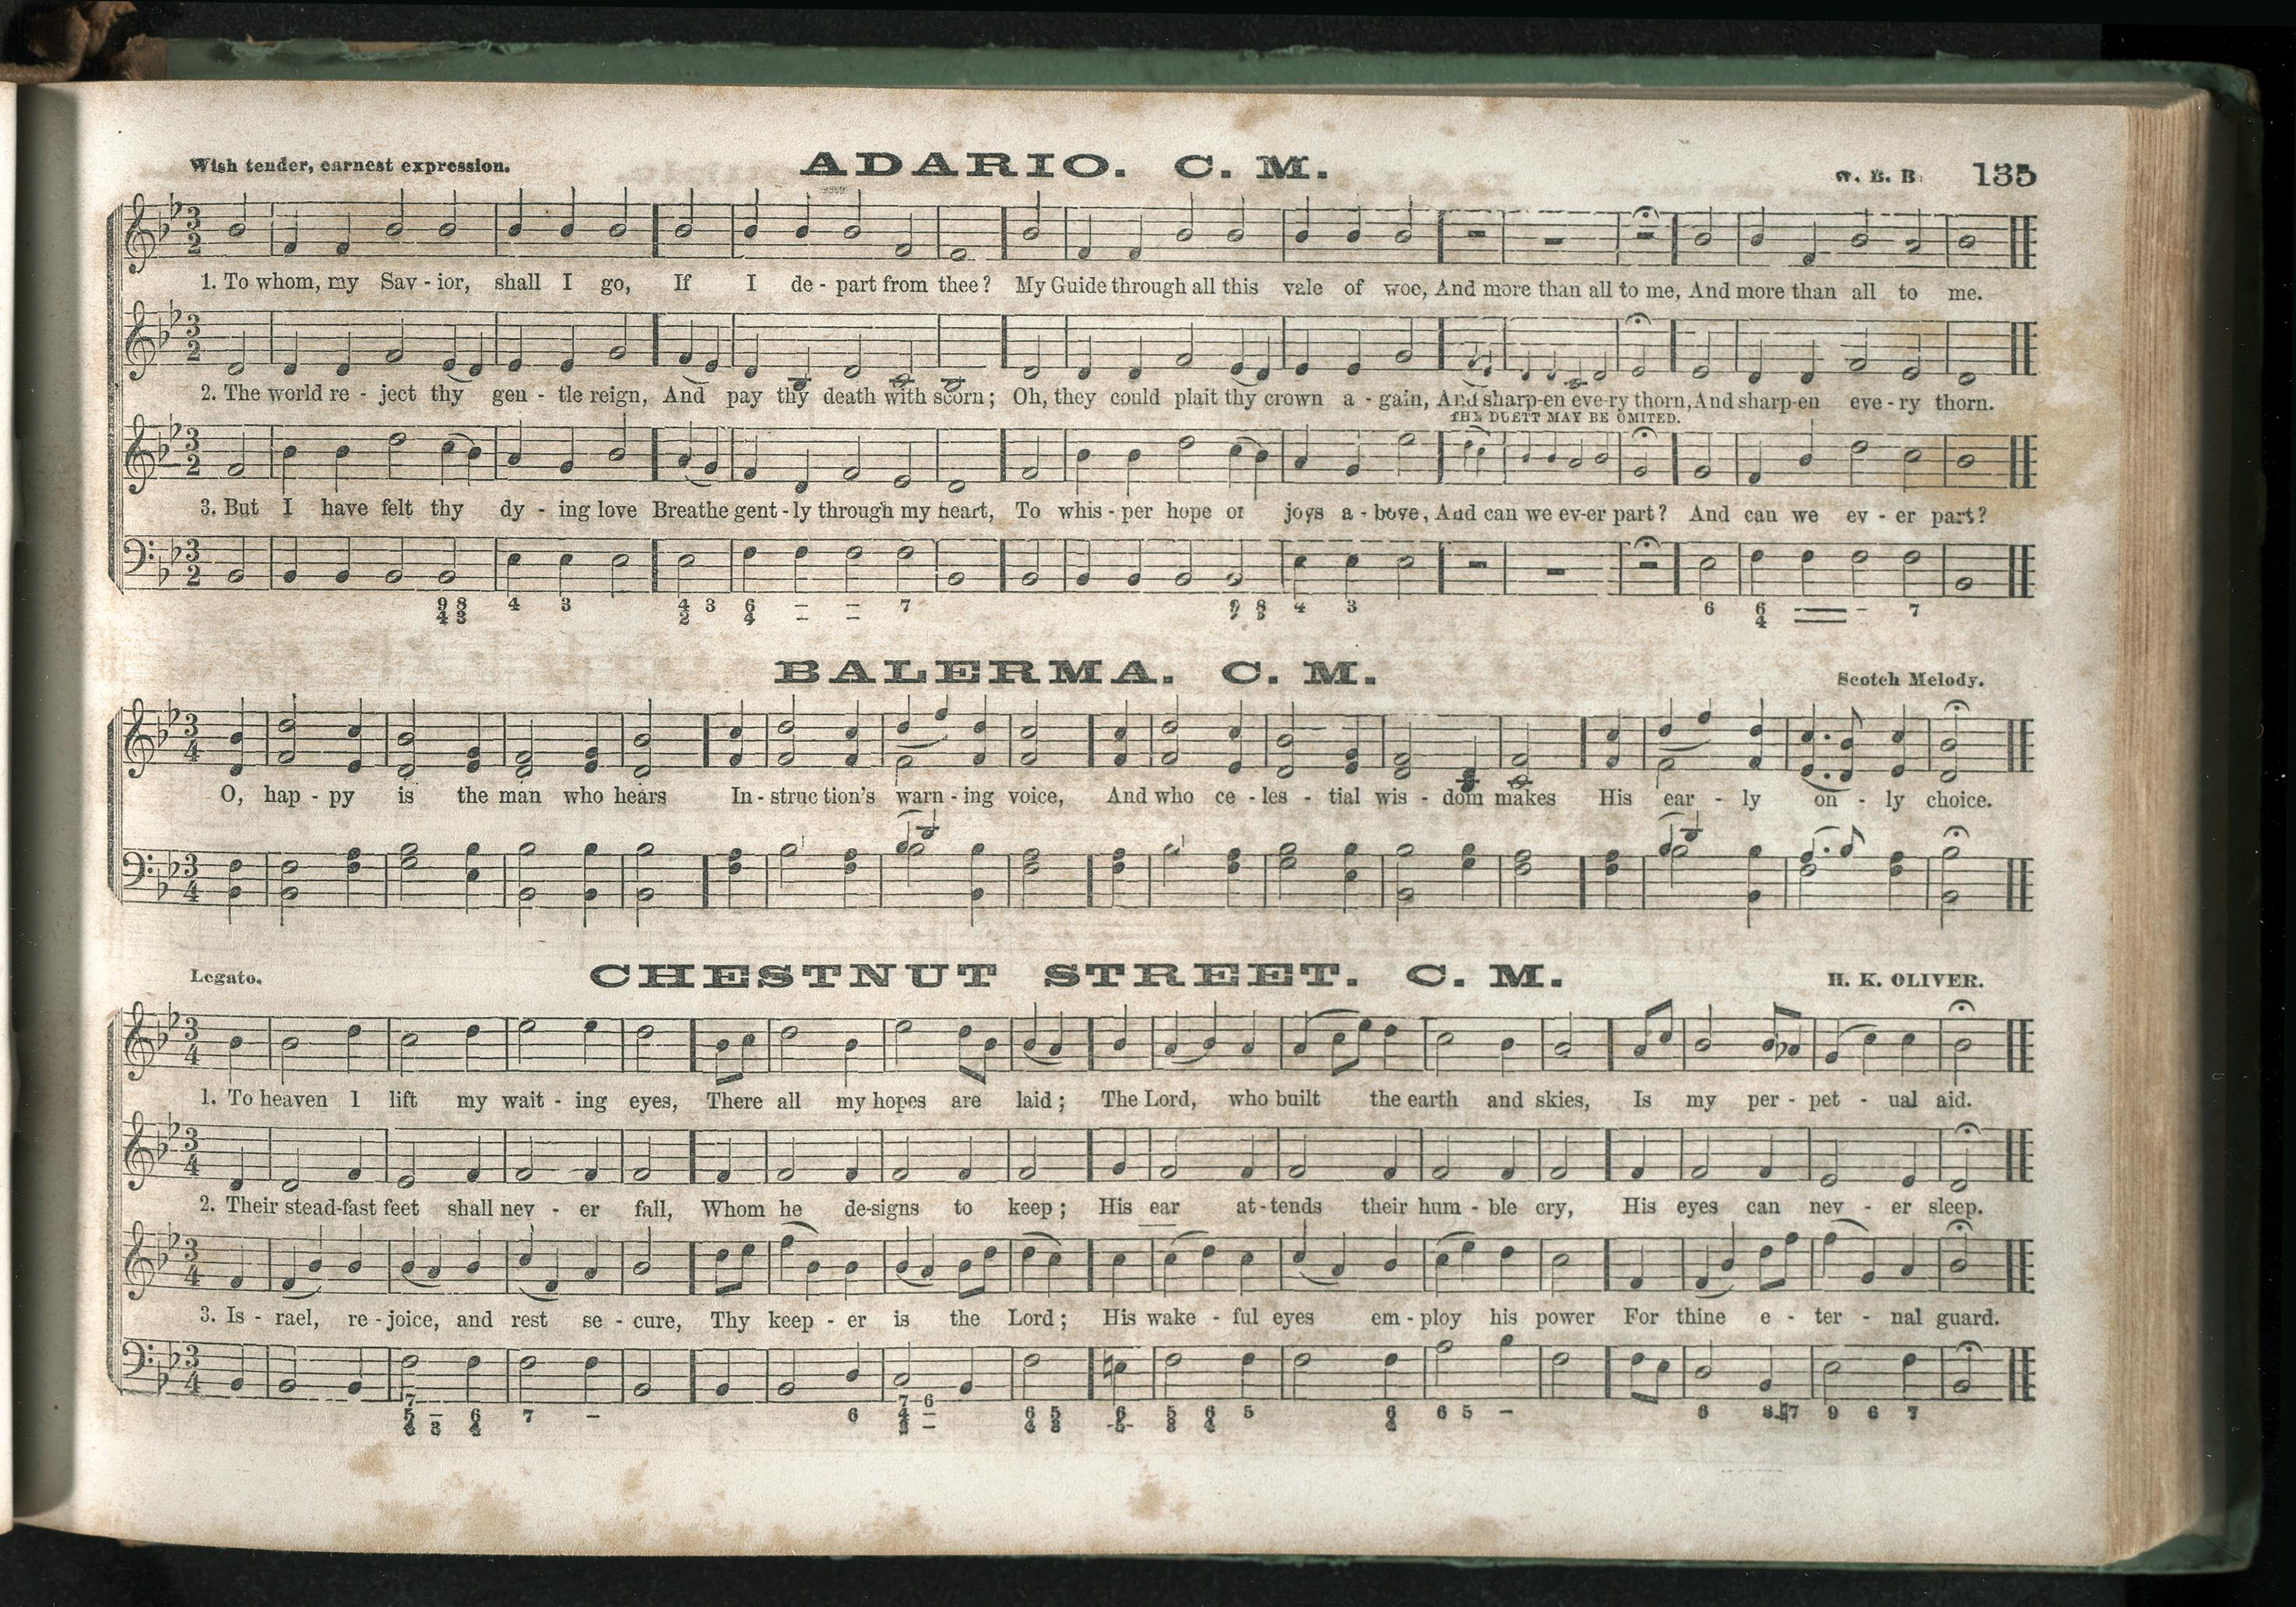 Wish tender, earnest expression. ADARIO. C. M. W. B. B. 135
1. To whom, my Sav - ior, shall I go, If I de - part from thee? My Guide through all this vale of woe, And more than all to me, And more than all to me.
2. The world re - ject thy gen - tle reign, And pay thy death with scorn; Oh, they could plait thy crown a - gain, And sharp-en eve-ry thorn, And sharp-en eve - ry thorn.
THE DUETT MAY BE OMITED.
3. But I have felt thy dy - ing love Breathe gent - ly through my heart, To whis - per hope of joys a - bove, And can we ev-er part? And can we ev - er part?
BALERMA. C. M. Scotch Melody.
O, hap - py is the man who hears In - struc tion's warn - ing voice, And who ce - les - tial wis - dom makes His ear - ly on - ly choice.
Legato. CHESTNUT STREET. C. M. H. K. OLIVER.
1. To heaven I lift my wait - ing eyes, There all my hopes are laid; The Lord, who built the earth and skies, Is my per - pet - ual aid.
2. Their stead-fast feet shall nev - er fall, Whom he de-signs to keep; His ear at - tends their hum - ble cry, His eyes can nev - er sleep.
3. Is - rael, re - joice, and rest se - cure, Thy keep - er is the Lord; His wake - ful eyes em - ploy his power For thine e - ter - nal guard.